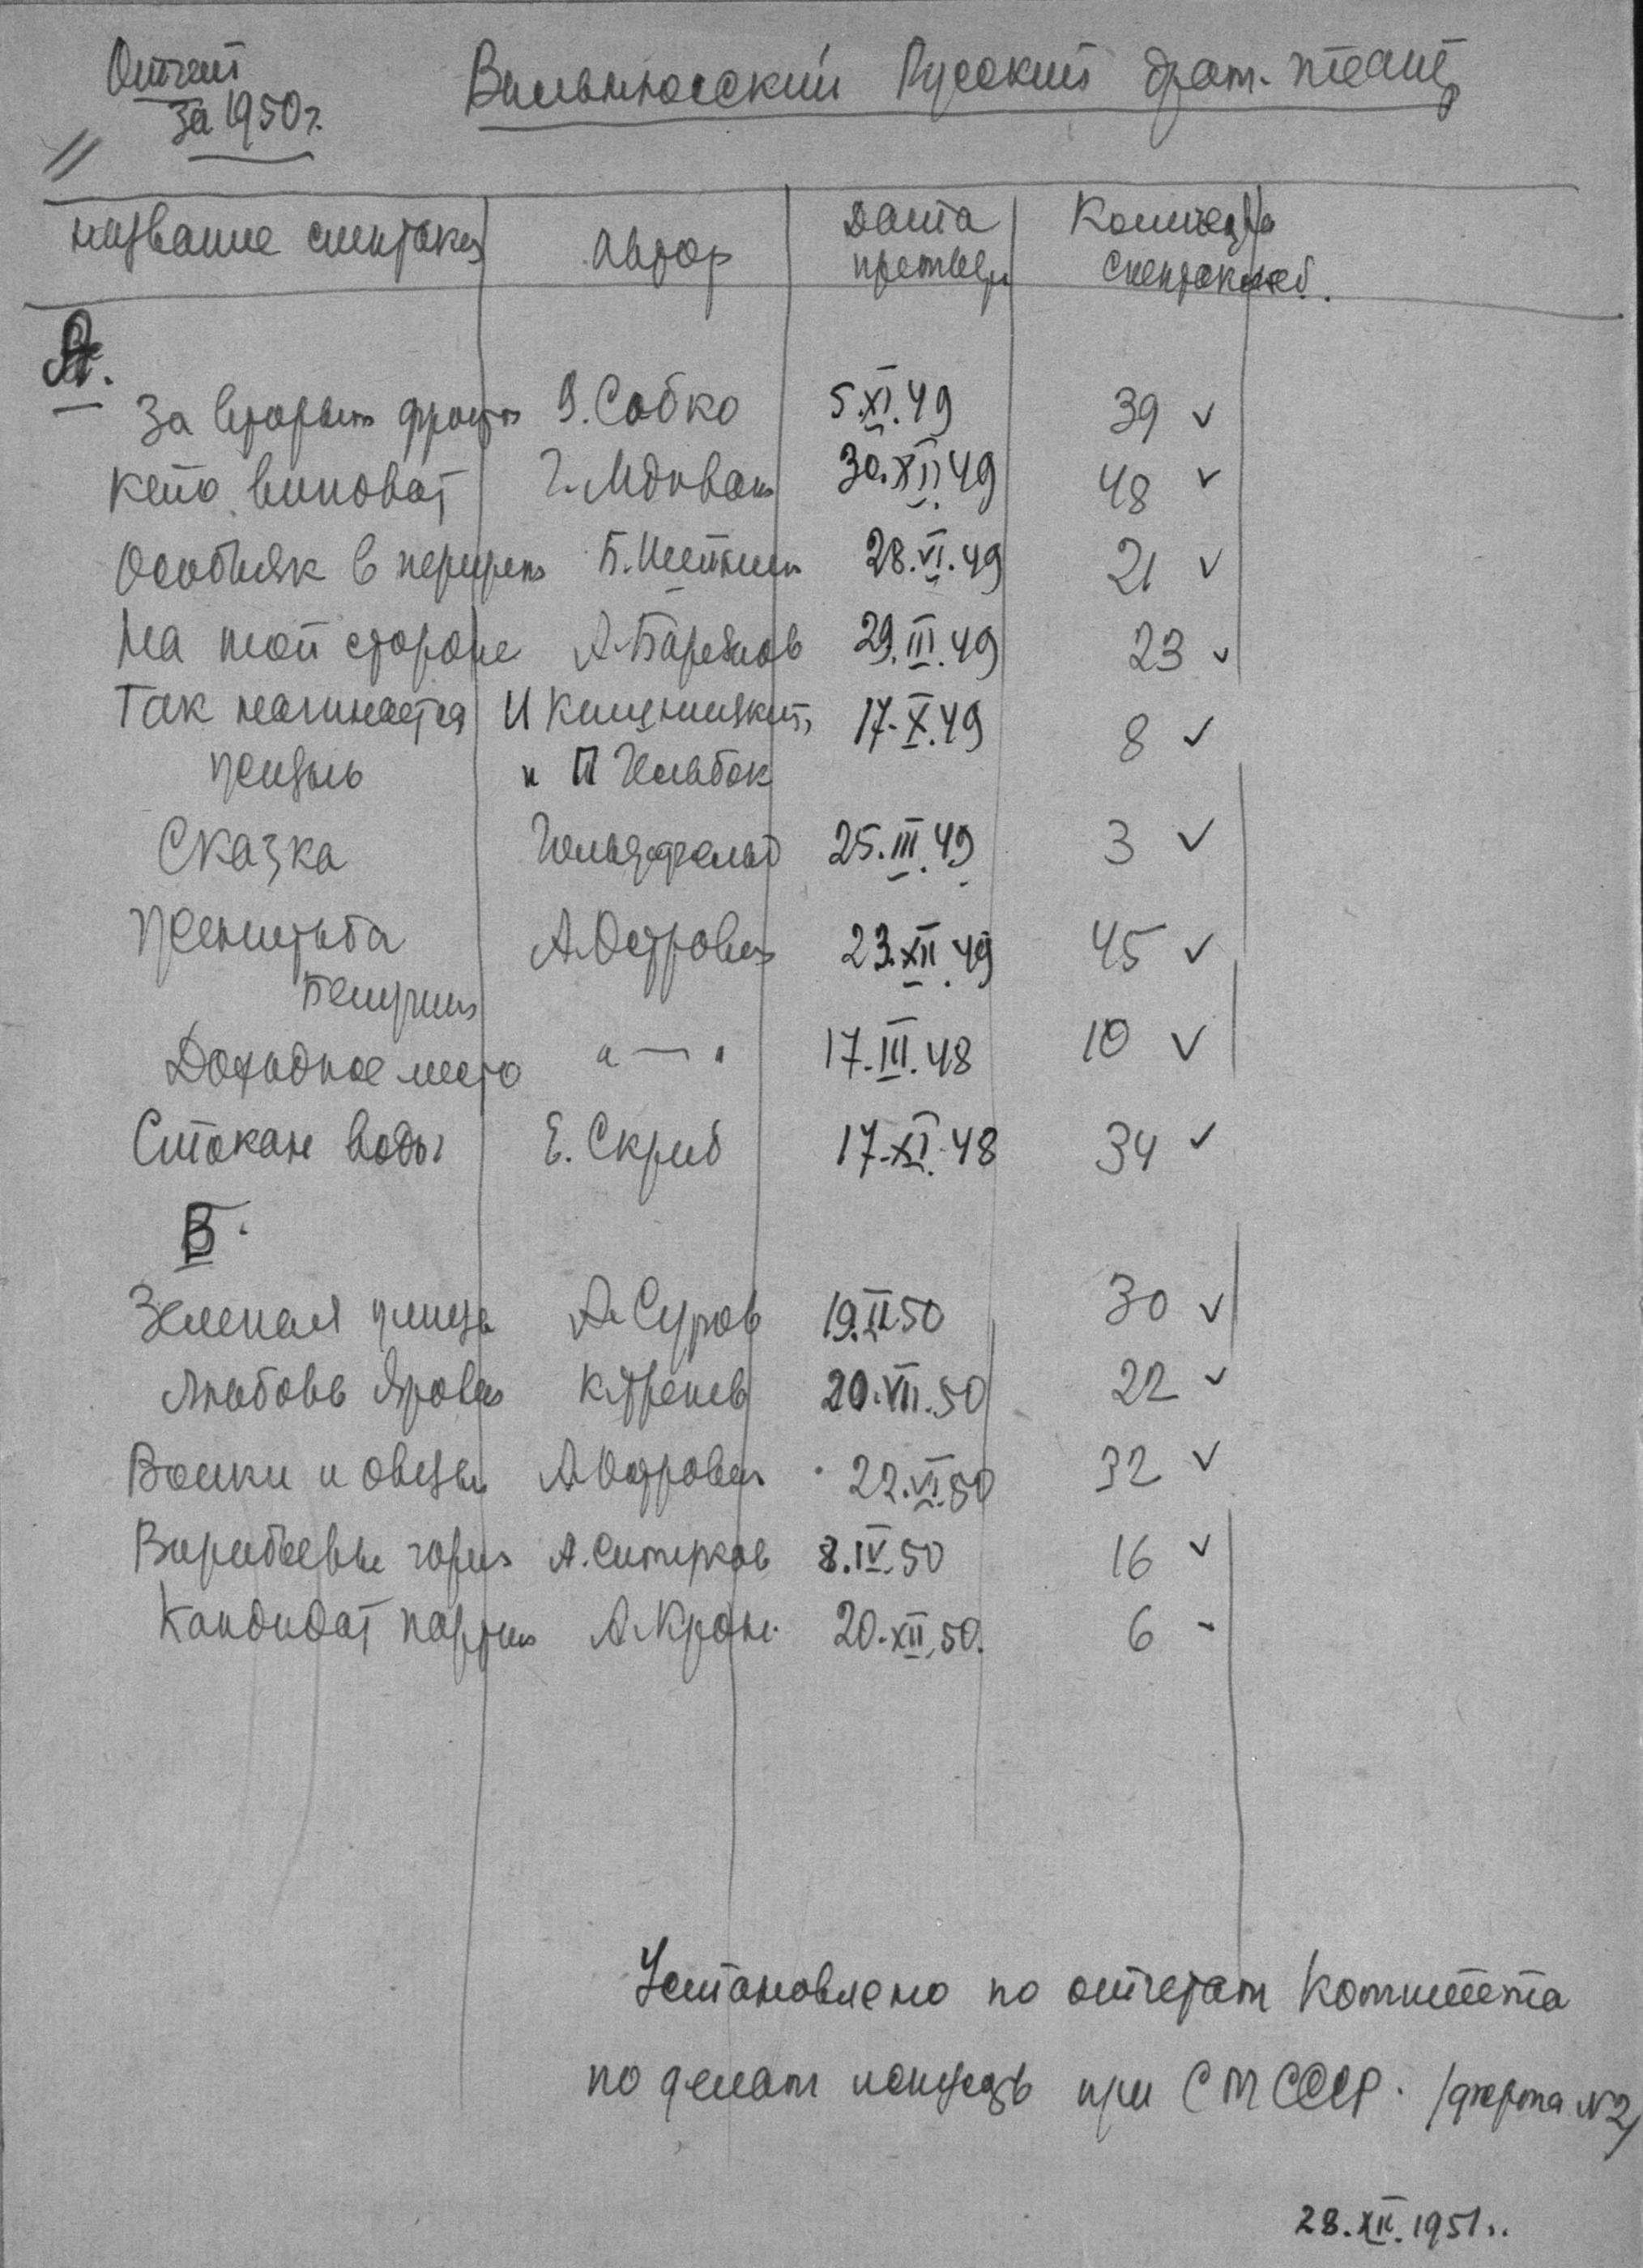 Отчет
за 1950 г.
Вильнюсский Русский драм. театр
название спектакля автор Дата премьеры Количество спектаклей.
А.
За вторым фронтом В. Собко 5.XI.49 39 ✓
Кето виноват Г. Мдивани 30.XII.49 48 ✓
Особняк в переулке Б. 28.VI.49 21 ✓
На той стороне А. Барянов 29.III.49 23 ✓
Так начинается И 17.X.49 8 ✓
и П
Сказка Гольдфельд 25.III.49 3 ✓
Женитьба А. Островский 23.XII.49 45 ✓
Белугина
Доходное место " — " 17.III.48 10 ✓
Стакан воды Е. Скриб 17.XI.48 34 ✓
Б.
Зеленая улица А. Суров 19.II.50 30 ✓
Любовь Яровая К. Тренев 20.VII.50 22 ✓
Волки и овцы А. Островский 22.VI.50 32 ✓
Воробьевы горы А. Симуков 8.IV.50 16 ✓
Кандидат партии А. Крон. 20.XII.50. 6 -
Установлено по отчетам Комитета
по делам искусств при СМ СССР. /форма №2/
28.XII.1951г.